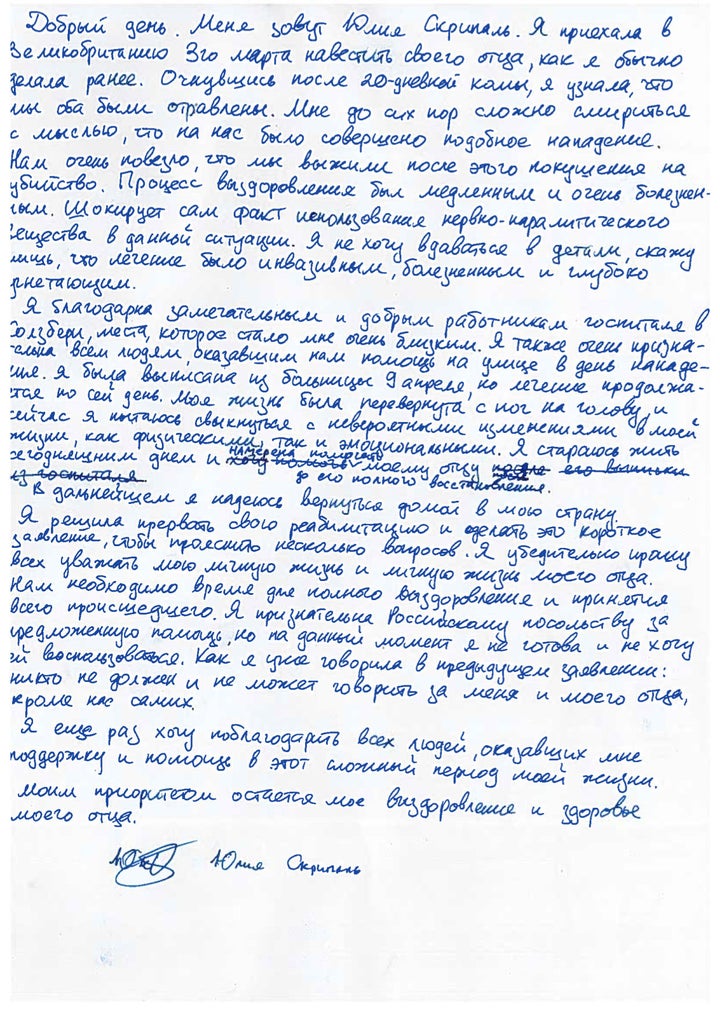 Добрый день. Меня зовут Юлия Скрипаль. Я приехала в
Великобританию 3го марта навестить своего отца, как я обычно
делала ранее. Очнувшись после 20-дневной комы, я узнала, что
мы оба были отравлены. Мне до сих пор сложно смириться
с мыслью, что на нас было совершено подобное нападение.
Нам очень повезло, что мы выжили после этого покушения на
убийство. Процесс выздоровления был медленным и очень болезнен-
ным. Шокирует сам факт использования нервно-паралитического
вещества в данной ситуации. Я не хочу вдаваться в детали, скажу
лишь, что лечение было инвазивным, болезненным и глубоко
угнетающим.
Я благодарна замечательным и добрым работникам госпиталя в
Солзбери, места, которое стало мне очень близким. Я также очень призна-
тельна всем людям, оказавшим нам помощь на улице в день нападе-
ния. Я была выписана из больницы 9 апреля, но лечение продолжа-
ется по сей день. Моя жизнь была перевернута с ног на голову, и
сейчас я пытаюсь свыкнуться с невероятными изменениями в моей
жизни, как физическими, так и эмоциональными. Я стараюсь жить
сегодняшним днем и хочу помочь намерена помогать моему отцу после его выписки
из госпиталя до его полного восстановления.
В дальнейшем я надеюсь вернуться домой в мою страну.
Я решила прервать свою реабилитацию и сделать это короткое
заявление, чтобы прояснить несколько вопросов. Я убедительно прошу
всех уважать мою личную жизнь и личную жизнь моего отца.
Нам необходимо время для полного выздоровления и принятия
всего происшедшего. Я признательна Российскому посольству за
предложенную помощь, но на данный момент я не готова и не хочу
ей воспользоваться. Как я уже говорила в предыдущем заявлении:
никто не должен и не может говорить за меня и моего отца,
кроме нас самих.
Я еще раз хочу поблагодарить всех людей, оказавших мне
поддержку и помощь в этот сложный период моей жизни.
Моим приоритетом остается мое выздоровление и здоровье
моего отца.
Юлия Скрипаль